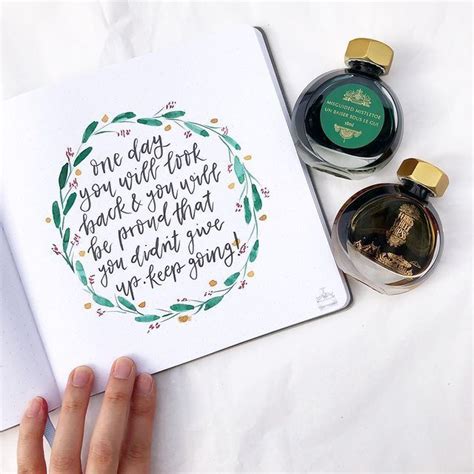 one day
you will look
back & you will
be proud that
you didn't give
up. keep going!
MISGUIDED MISTLETOE
UN BAISER SOUS LE GUI